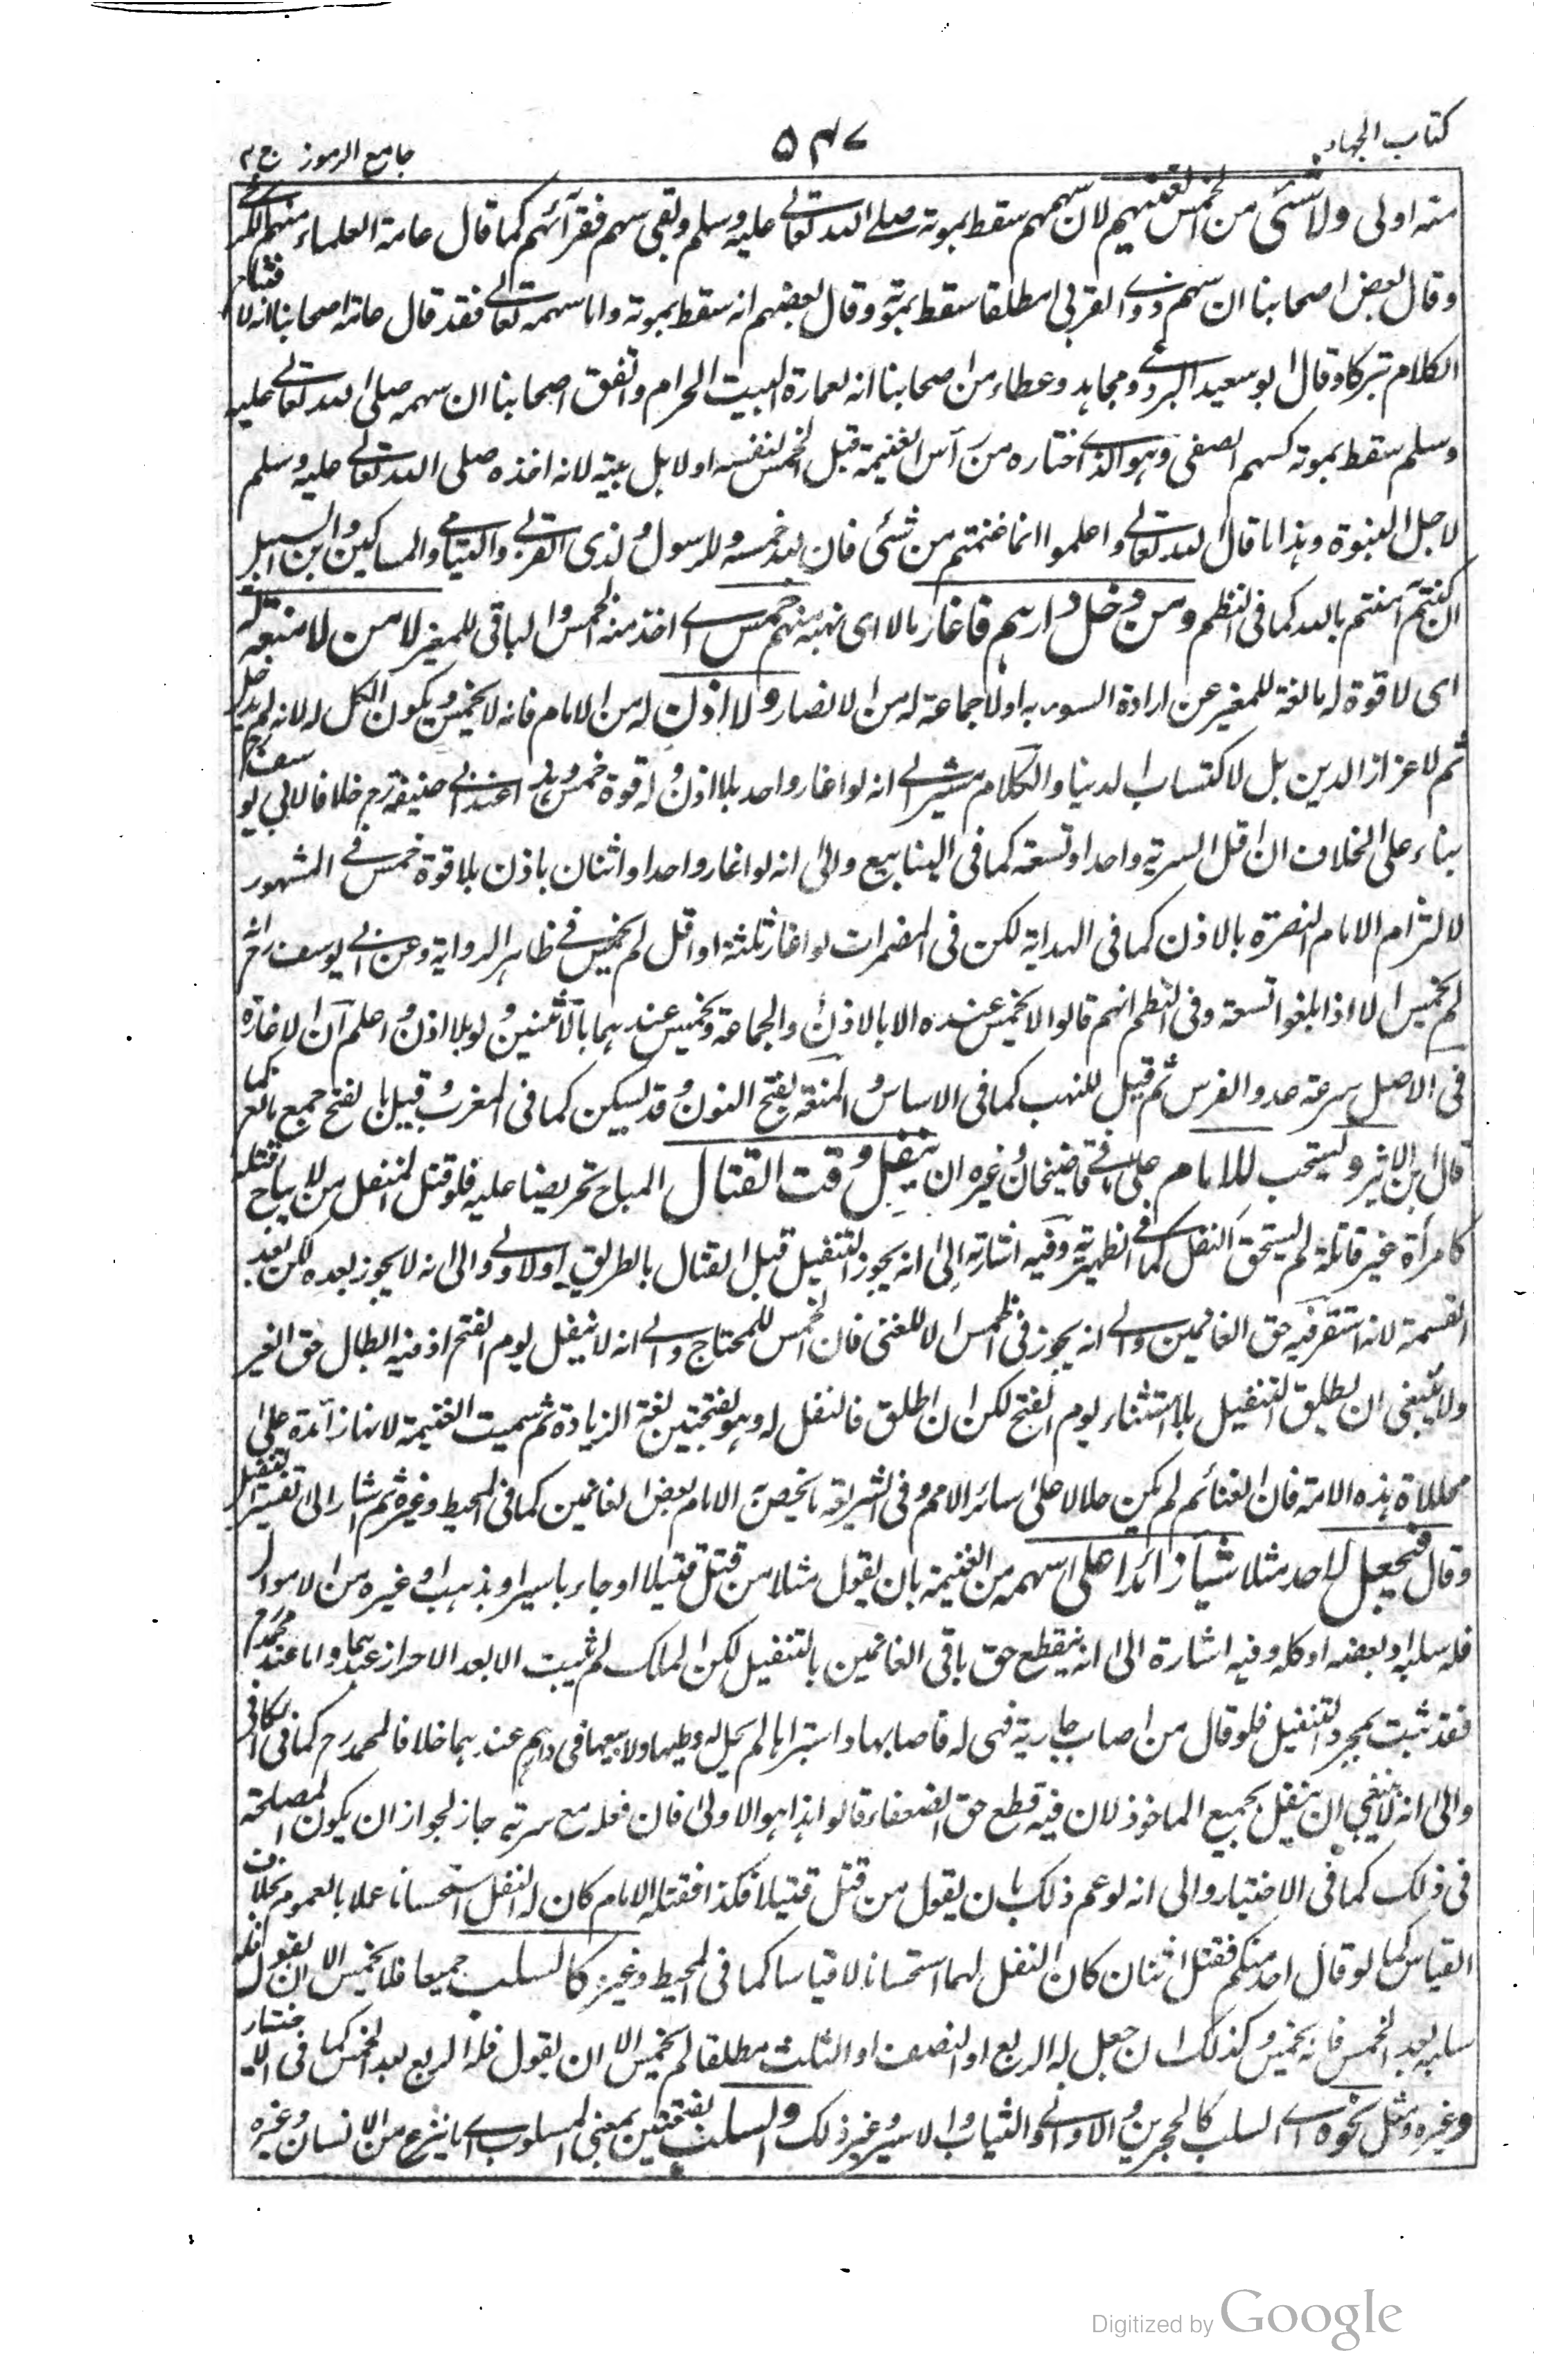 كتاب الجهاد
٥٤٧
جامع الرموز ج ٢
منه اولى ولا شئ من الخمس لغنيهم لان سهمهم سقط بموته صلى الله تعالى عليه وسلم وبقى سهم فقرآئهم كما قال عامة العلماء منهم الكرخي
وقال بعض اصحابنا ان سهم ذوى القربى مطلقا سقط بموته وقال بعضهم انه سقط بموته واما سهمه تعالى فقد قال عامة اصحابنا انه لافتتاح
الكلام تبركا وقال ابو سعيد البردعى ومجاهد وعطاء من اصحابنا انه لعمارة البيت الحرام واتفق اصحابنا ان سهمه صلى الله تعالى عليه
وسلم سقط بموته كسهم الصفى وهو الذى اختاره من رأس الغنيمة قبل الخمس لنفسه او لاهل بيته لانه اخذه صلى الله تعالى عليه وسلم
لاجل النبوة وهذا ما قال الله تعالى واعلموا انما غنمتم من شئ فان لله خمسه وللرسول ولذى القربى واليتامى والمساكين وابن السبيل
ان كنتم آمنتم بالله كما فى النظم ومن دخل دارهم فاغار مالا اى نهبه منهم خمس اى اخذ منه الخمس والباقى للمغير لا من لا منعة له
اى لا قوة له مانعة للمغير عن ارادة السوء به او لا جماعة له من الانصار ولا اذن له من الامام فانه لا يخمس ويكون الكل له لانه لم يدخل
ثم لاعزاز الدين بل لاكتساب الدنيا والكلام مشير الى انه لو اغار واحد بلا اذن وله قوة خمس وهذا عند ابى حنيفة رح خلافا لابي يوسف رح
بناء على الخلاف ان اقل السرية واحد او تسعة كما فى الينابيع والى انه لو اغار واحد او اثنان باذن بلا قوة خمس فى المشهور
لالتزام الامام النصرة بالاذن كما فى الهداية لكن فى المضمرات لو اغار ثلثة او اقل لم يخمس فى ظاهر الرواية وعن ابى يوسف رح انه
لم يخمس الا اذا بلغوا تسعة وفى النظم انهم قالوا لا يخمس عنده الا بالاذن والجماعة ويخمس عندهما بالاثنين ولو بلا اذن واعلم ان الاغارة
فى الاصل سرعة عدو الفرس ثم قيل للنهب كما فى الاساس والمنعة بفتح النون وقد يسكن كما فى المغرب وقيل بالفتح جمع مانع كما
قال ابن الاثير ويستحب للامام على ما فى قاضيخان وغيره ان ينفل وقت القتال المباح تحريضا عليه فلو قتل المنفل من لا يباح قتله
كامرأة غير قاتلة لم يستحق النفل كما فى الظهيرية وفيه اشارة الى انه يجوز التنفيل قبل القتال بالطريق الاولى والى انه لا يجوز بعده لكن بعد
القسمة لانه استقر فيه حق الغانمين والى انه يجوز فى الخمس لا للغنى فان الخمس للمحتاج والى انه لا ينفل يوم الفتح اذ فيه ابطال حق الغير
ولا ينبغى ان يطلق التنفيل بلا استثناء يوم الفتح لكن ان اطلق فالنفل له وهو بفتحتين لغة الزيادة ثم سميت الغنيمة لانها زائدة على
محللاة هذه الامة فان الغنائم لم يكن حلالا على سائر الامم وفى الشريعة ما يخص به الامام بعض الغانمين كما فى المحيط وغيره ثم اشار الى تفسير التنفيل
وقال فيجعل لاحد مثلا شيأ زائدا على سهمه من الغنيمة بان يقول مثلا من قتل قتيلا او جاء باسير او بذهب او غيره من الاموال
فله سلبه او بعضه او كله وفيه اشارة الى انه ينقطع حق باقى الغانمين بالتنفيل لكن الملك لم يثبت الا بعد الاحراز عندهما واما عند محمد رح
فقد ثبت بمجرد التنفيل فلو قال من اصاب جارية فهى له فاصابها واستبرأها لم يحل له وطيها ولا بيعها فى دارهم عندهما خلافا لمحمد رح كما فى الكافى
والى انه لا ينبغى ان ينفل بجميع الماخوذ لان فيه قطع حق الضعفاء قالوا هذا هو الاولى فان فعله مع سرية جاز لجواز ان يكون المصلحة
فى ذلك كما فى الاختيار والى انه لو عم ذلك بان يقول من قتل قتيلا فكذا فقتله الامام كان له النفل استحسانا عملا بالعموم بخلاف
القياس كما لو قال احد منكم فقتل اثنان كان النفل لهما استحسانا لا قياسا كما فى المحيط وغيره كالسلب جميعا فلا يخمس الا ان يقول فله
سلبه بعد الخمس فانه يخمس وكذلك ان جعل له الربع او النصف او الثلث مطلقا لم يخمس الا ان يقول فله الربع بعد الخمس كما فى الاختيار
وغيره ومثل نحوه اى السلب كالحجرين والاوانى والثياب والاسير وغير ذلك والسلب بفتحتين بمعنى المسلوب اى ما ينزع من الانسان وغيره
Digitized by Google